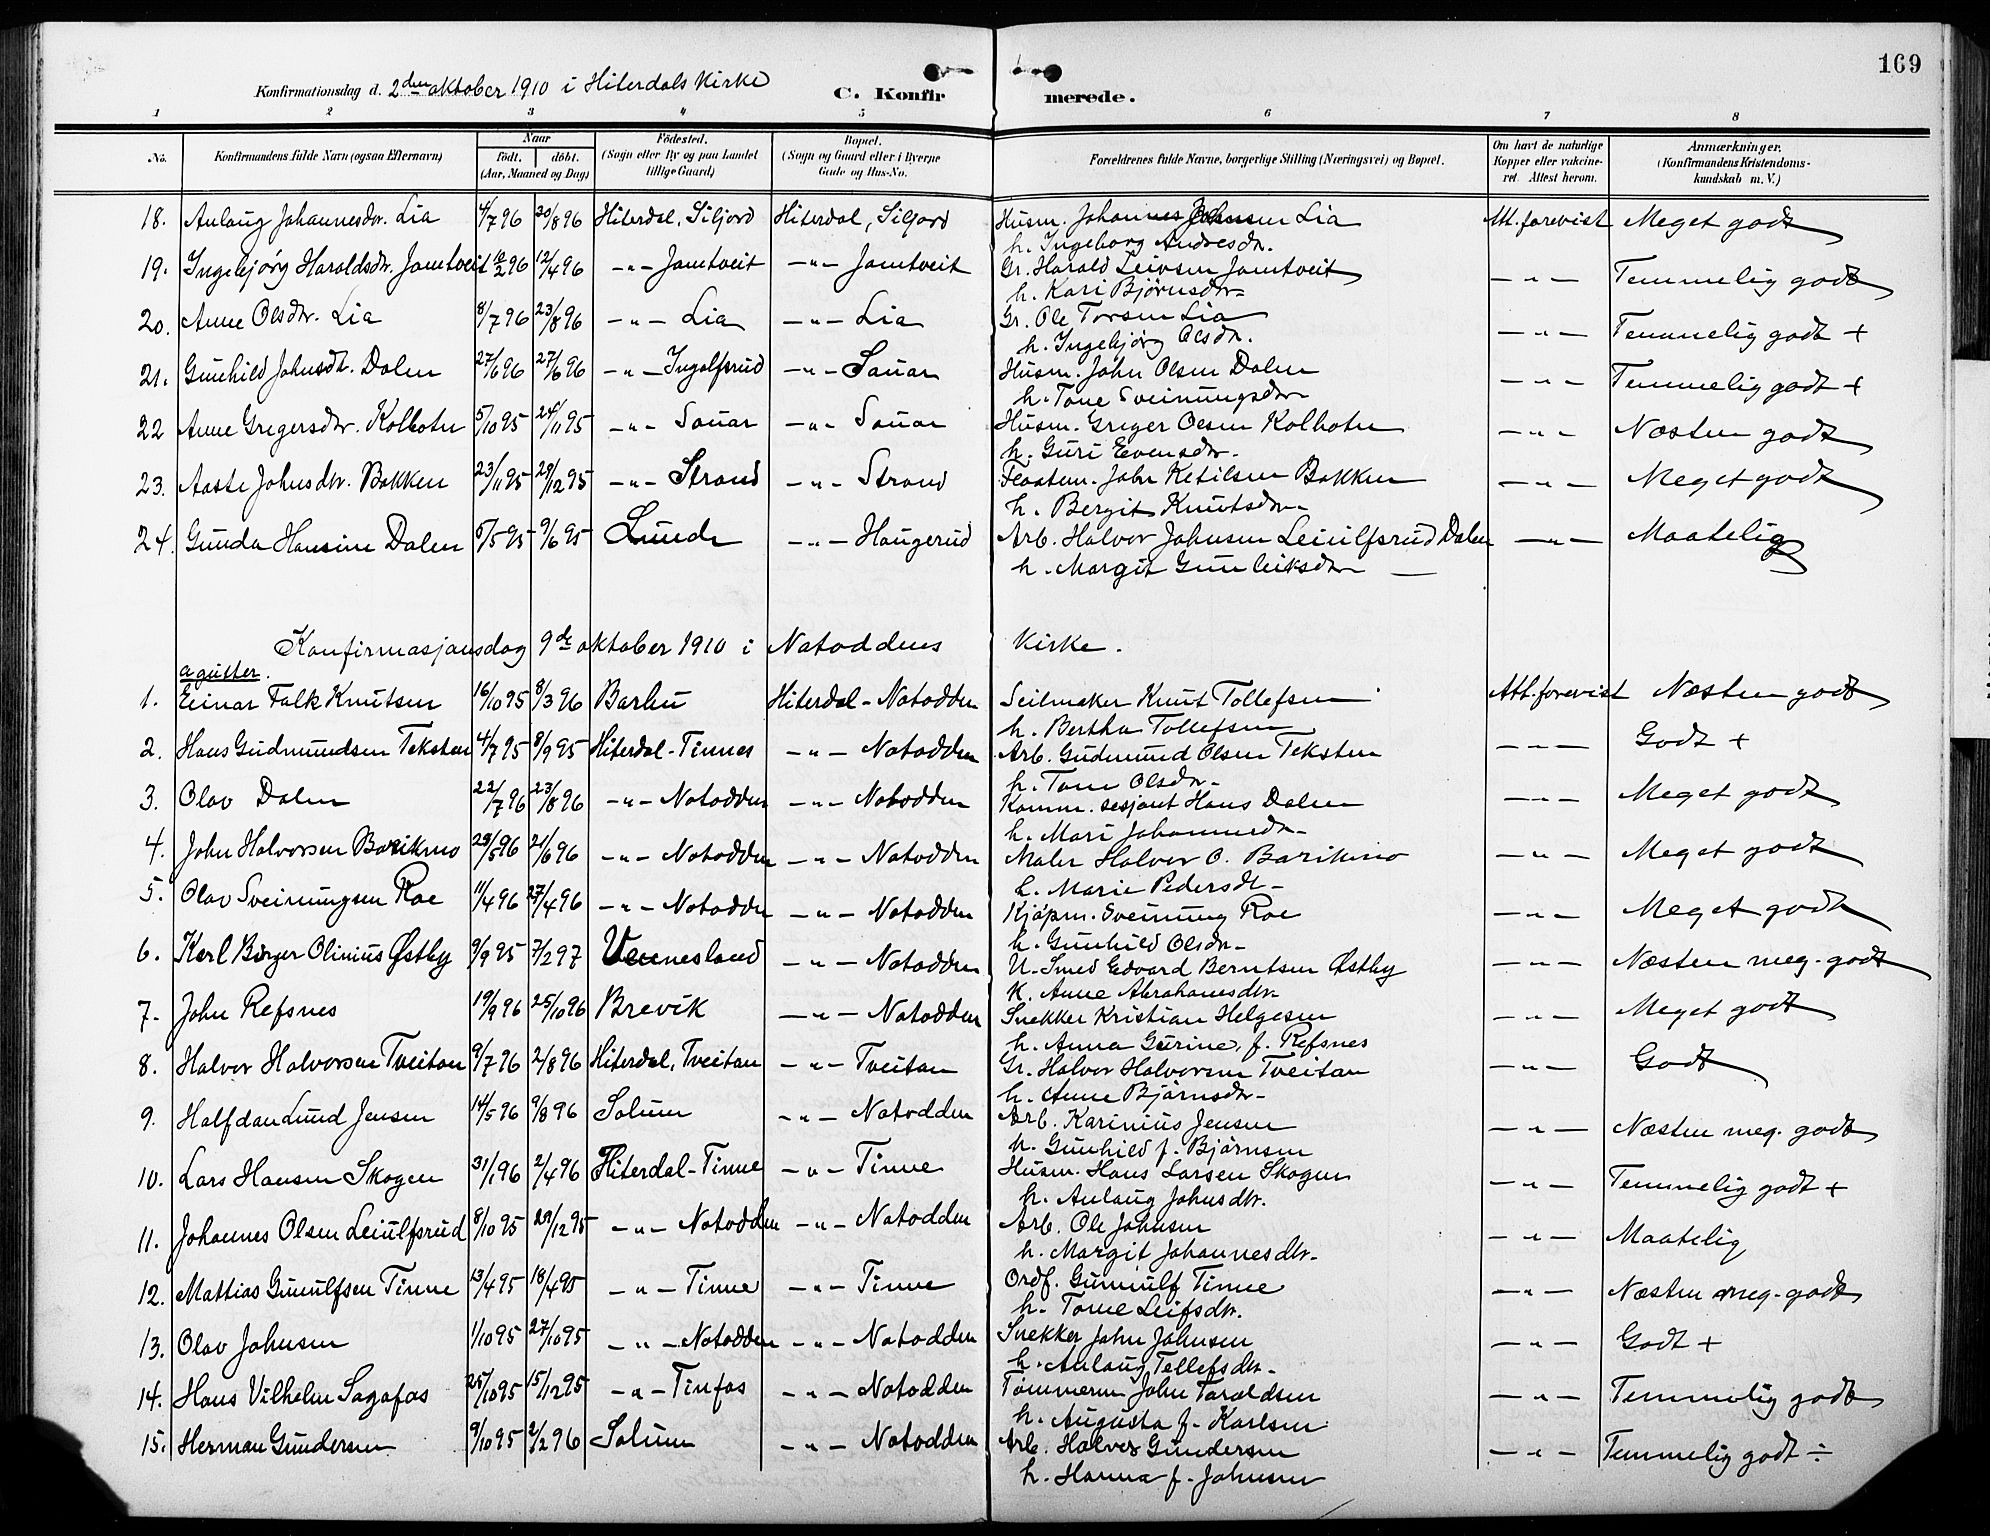 169
Konfirmationsdag d. 2den oktober 1910 i Hiterdals Kirke
C. Konfirmerede.
1 2 3 4 5 6 7 8
No. Konfirmandens fulde Navn (ogsaa Efternavn) Naar født. døbt. (Aar, Maaned og Dag) Födested. (Sogn eller By og paa Landet tillige Gaard) Bopæl. (Sogn og Gaard eller i Byerne Gade og Hus-No. Forældrenes fulde Navne, borgerlige Stilling (Næringsvei) og Bopæl. Om havt de naturlige Kopper eller vakcineret. Attest herom. Anmærkninger. (Konfirmandens Kristendomskundskab m. V.)
18. Anlaug Johannesdtr. Lia 4/7 96 30/8 96 Hiterdal, Siljord Hiterdal, Siljord Husm. Johannes Johnsen Lia Att. forevist Meget godt
h. Ingeborg Andresdtr.
19. Ingebjörg Haraldsdtr. Jamtveit 16/2 96 12/4 96 -"- Jamtveit -"- Jamtveit Gr. Harald Leivsen Jamtveit -"- Temmelig godt
h. Kari Bjørnsdtr
20. Anne Olsdtr. Lia 8/7 96 23/8 96 -"- Lia -"- Lia Gr. Ole Torsen Lia -"- Temmelig godt +
h. Ingebjörg Olsdtr.
21. Gunhild Johnsdt. Dalen 27/6 96 -"- Ingolfsrud -"- Sauar Husm. John Olsen Dalen -"- Temmelig godt +
h. Tone Sveinungsdtr
22 Anne Gregersdtr. Kolhotn 5/10 95 24/11 95 -"- Sauar -"- Sauar Husm. Greger Olsen Kolhotn -"- Næsten godt
h. Guri Evensdtr.
23. Aaste Johnsdtr. Bakken 23/11 95 29/12 95 -"- Strand -"- Strand Fløatem. John Ketilsen Bakken -"- Meget godt
h. Bergit Knutsdtr
24. Gunda Hansine Dalen 5/5 95 9/6 95 Lunde -"- Haugerud Arb. Halvor Johnsen Leiulfsrud Dalen -"- Maatelig
h. Margit Gunleiksdtr
Konfirmasjonsdag 9de oktober 1910 i Notoddens Kirke.
a gutter.
1. Einar Falk Knutsen 16/10 95 8/3 96 Barbu Hiterdal - Notodden Seilmaker Knut Tollefsen Att. forevist Næsten godt
h. Bertha Tollefsen
2. Hans Gudmundsen Teksten 4/7 95 8/9 95 Hiterdal - Tinnes -"- Notodden Arb. Gudmund Olsen Teksten -"- Godt +
h. Tone Olsdtr
3. Olav Dalen 22/7 96 23/8 96 -"- Notodden -"- Notodden Komm. sesjant Hans Dalen -"- Meget godt
h. Mari Johannesdtr
4. John Halvorsen Barikmo 29/5 96 21/6 96 -"- Notodden -"- Notodden Maler Halvor O. Barikmo -"- Meget godt
h. Marie Pedersdt
5. Olav Sveinungsen Roe 11/4 96 27/4 96 -"- Notodden -"- Notodden Kjøpm. Sveinung Roe -"- Meget godt
h. Gunhild Olsdtr
6. Karl Birger Olinius Østby 9/9 95 7/2 97 Vennesland -"- Notodden U. Smed Edvard Berntsen Østby -"- Næsten meg. godt
K. Anne Abrahamsdtr
7. John Refsnes 19/9 96 25/10 96 Brevik -"- Notodden Snekker Kristian Helgesen -"- Meget godt
h. Anna Gurine, f. Refsnes
8. Halvor Halvorsen Tveitan 9/7 96 2/8 96 Hiterdal, Tveitan -"- Tveitan Gr. Halvor Halvorsen Tveitan -"- Godt
h. Anne Bjørnsdtr
9. Halfdan Lund Jensen 14/5 96 9/8 96 Solum -"- Notodden Arb. Karinius Jensen -"- Næsten meg. godt
h. Gunhild f. Bjørnsen
10. Lars Hansen Skogen 31/1 96 2/4 96 Hiterdal - Tinne -"- Tinne Husm. Hans Larsen Skogen -"- Temmelig godt +
h. Anlaug Johnsdtr.
11. Johannes Olsen Leiulfsrud 8/10 95 29/12 95 -"- Notodden -"- Notodden Arb. Ole Johnsen -"- Maatelig
h. Margit Johannesdtr.
12. Mattias Gunulfsen Tinne 13/4 95 18/4 95 -"- Tinne -"- Tinne Ordf. Gunnulf Tinne -"- Næsten meg. godt
h. Tone Leifsdtr.
13. Olav Johnsen 1/10 95 27/10 95 -"- Notodden -"- Notodden Snekker John Johnsen -"- Godt +
h. Anlaug Tellefsdtr
14. Hans Vilhelm Sagafos 25/10 95 15/12 95 -"- Tinfos -"- Notodden Tømmerm John Taraldsen -"- Temmelig godt
h. Augusta f. Karlsen
15. Herman Gundersen 9/10 95 2/2 96 Solum -"- Notodden Arb. Halvor Gundersen -"- Temmelig godt ÷
h. Hanna f. Johnsen